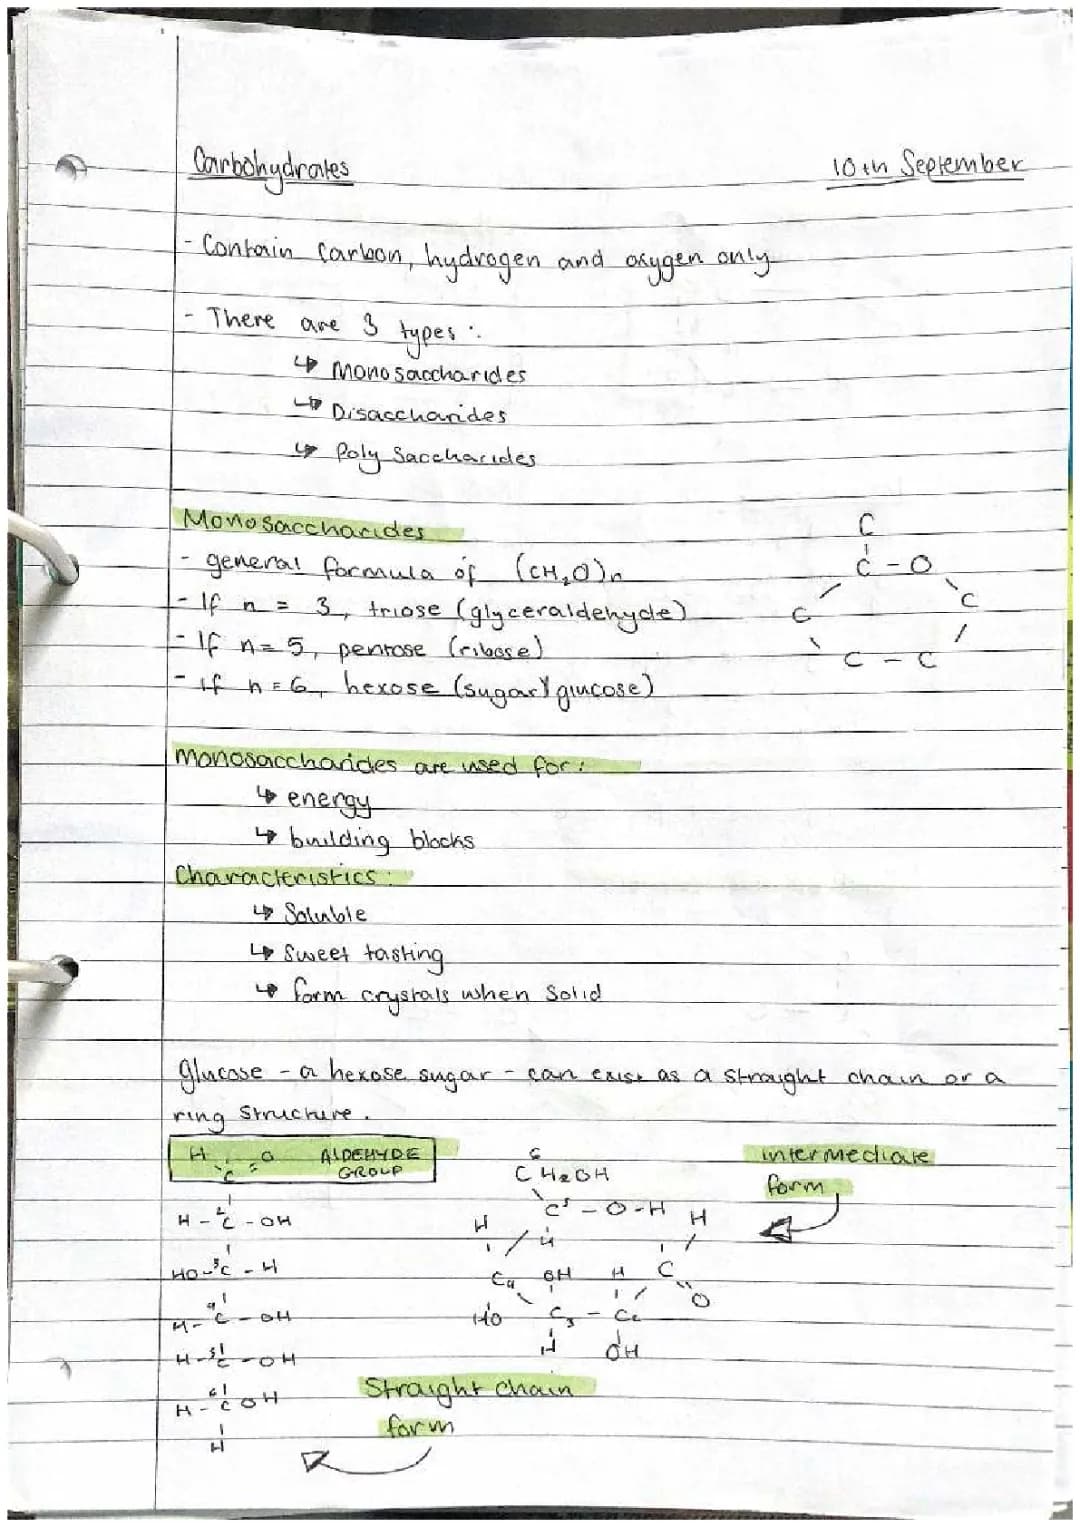 Carbohydrates 10th September
- Contain carbon, hydrogen and oxygen only
- There are 3 types:
↳ Monosaccharides
↳ Disaccharides
↳ Poly Saccharides
Monosaccharides
- general formula of (CH₂O)n
- If n = 3, triose (glyceraldehyde)
- If n = 5, pentose (ribose)
- if n = 6, hexose (sugar)(glucose)
C
C - O
C C
C - C
Monosaccharides are used for:
↳ energy
↳ building blocks
Characteristics:
↳ Soluble
↳ Sweet tasting
↳ form crystals when Solid
Glucose - a hexose sugar - can exist as a straight chain or a
ring structure.
H O ALDEHYDE
C GROUP
H - ²C - OH
HO - ³C - H
H - ⁴C - OH
H - ⁵C - OH
H - ⁶C OH
H
Straight chain
form
6
CH₂OH
C⁵ - O - H
H H H
C₄ OH H C
HO C₃ - C₂ O
H OH
intermediate
form